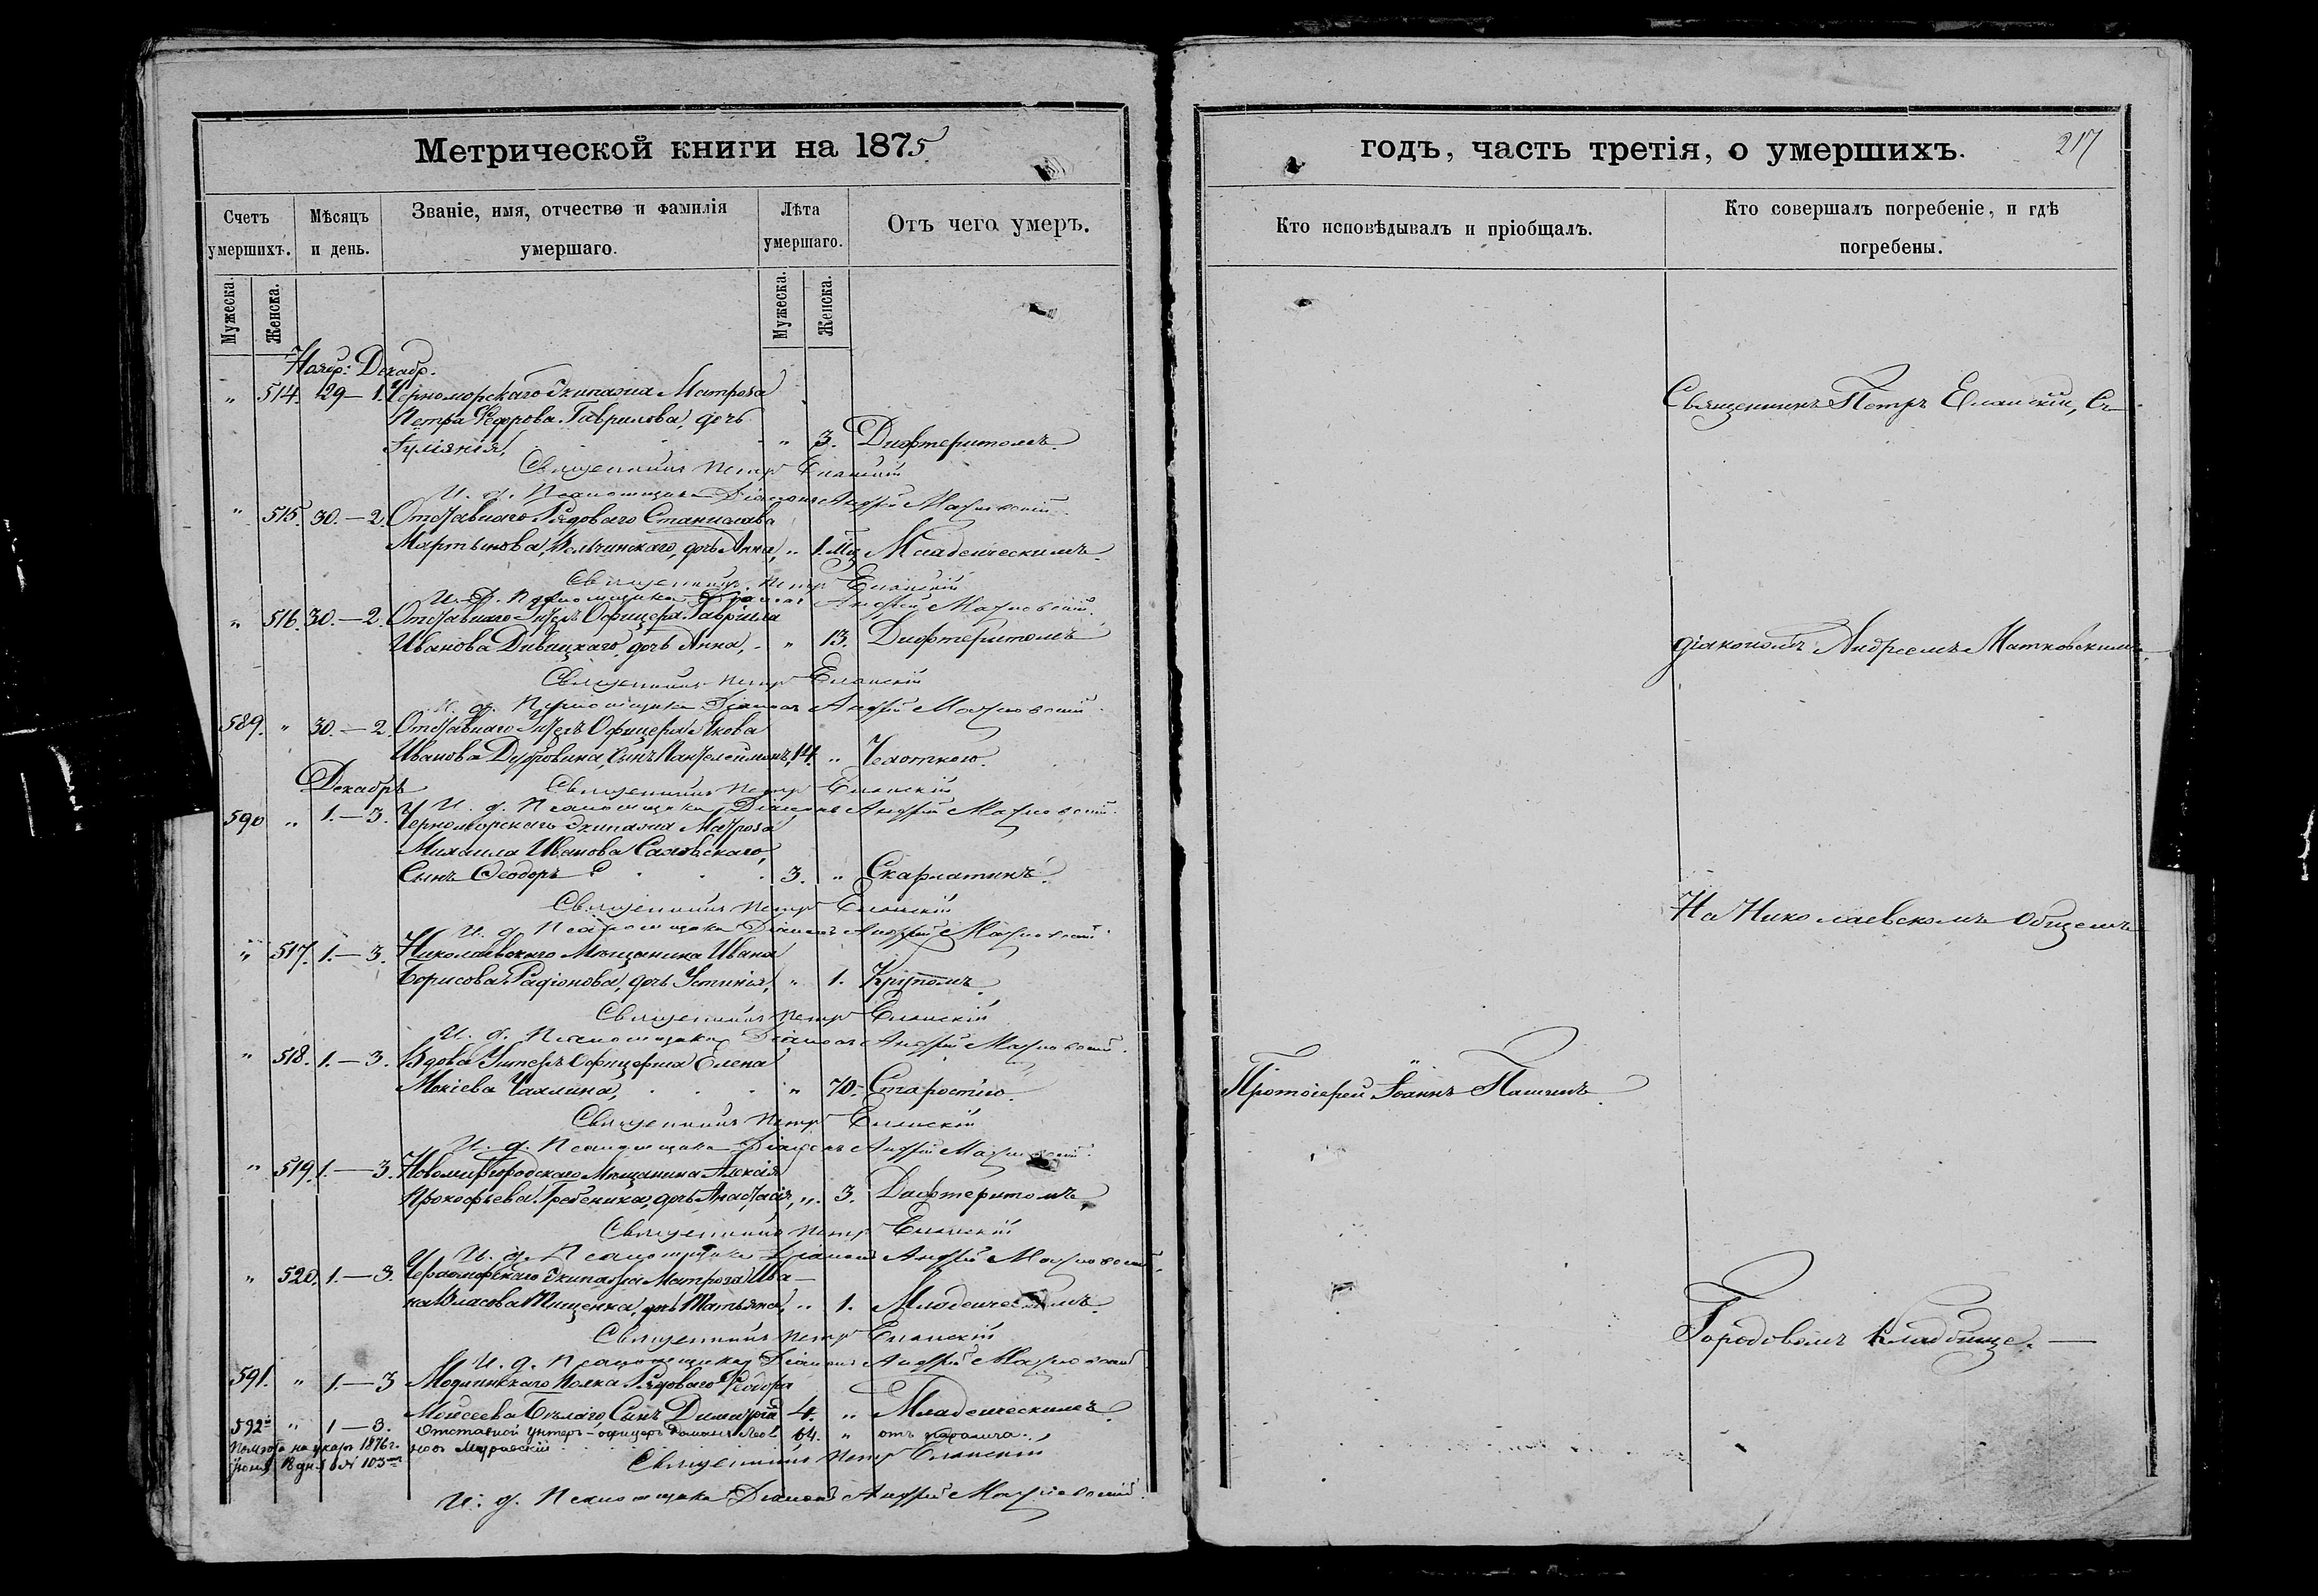 Метрической книги на 1875
Счетъ умершихъ.
Мѣсяцъ и день.
Званіе, имя, отчество и фамилія умершаго.
Лѣта умершаго.
Отъ чего умеръ.
Мужеска.
Женска.
Мужеска.
Женска.
Ноябр: Декабр.
" 514. 29 – 1. Черноморскаго Экипажа Матроса
Петра Федорова Гаврилова, дочь
Іуліянія, " 3. Дифтеритомъ.
Священникъ Петръ Еланскій
И. д. Псаломщика Діаконъ Андрей Матковскій.
" 515. 30. – 2. Отставного Рядоваго Станислава
Мартынова, дочь Анна, " 1. мц Младенческимъ.
Священникъ Петръ Еланскій
И. д. Псаломщика Діаконъ Андрей Матковскій.
" 516. 30. – 2. Отставнаго Унтеръ Офицера Гавріила
Иванова Дивицкаго, дочь Анна, " 13. Дифтеритомъ
Священникъ Петръ Еланскій
И. д. Псаломщика Діаконъ Андрей Матковскій.
589. " 30. – 2. Отставнаго Унтеръ Офицера Якова
Иванова Дубровина, сынъ Пантелеимонъ, 14. " Чахоткою.
Декабрь
Священникъ Петръ Еланскій
И. д. Псаломщика Діаконъ Андрей Матковскій.
590 " 1. – 3. Черноморскаго Экипажа Матроса
Михаила Иванова
Сынъ Ѳеодоръ 3. " Скарлатинъ.
Священникъ Петръ Еланскій
И. д. Псаломщика Діаконъ Андрей Матковскій.
" 517. 1. – 3. Николаевскаго Мѣщанина Ивана
Борисова Радіонова, дочь Устинія, " 1. Крупомъ.
Священникъ Петръ Еланскій
И. д. Псаломщика Діаконъ Андрей Матковскій.
" 518. 1. – 3. Вдова Унтеръ Офицерша Елена
Мокіева Чахлина, " 70. Старостію.
Священникъ Петръ Еланскій
И. д. Псаломщика Діаконъ Андрей Матковскій.
" 519. 1. – 3. Новомиргородскаго Мѣщанина Алексія
Прокофьева Гребеника, дочь Анастасія, " 3. Дифтеритомъ.
Священникъ Петръ Еланскій
И. д. Псаломщика Діаконъ Андрей Матковскій.
" 520. 1. – 3. Черноморскаго Экипажа Матроса Ива-
на Власова Тищенка, дочь Татьяна, " 1. Младенческимъ.
Священникъ Петръ Еланскій
И. д. Псаломщика Діаконъ Андрей Матковскій
591. " 1. – 3 Модлинскаго Полка Рядоваго Ѳеодора
Моисеева Бѣлаго, Сынъ Димитрій 4. " Младенческимъ.
592 " 1 – 3. Отставной унтеръ-офицеръ 64. " отъ паралича.
Священникъ Петръ Еланскій
И. д. Псаломщика Діаконъ Андрей Матковскій.
годъ, часть третія, о умершихъ.
217
Кто исповѣдывалъ и пріобщалъ.
Кто совершалъ погребеніе, и гдѣ погребены.
Священникъ Петръ Еланскій, Съ
діакономъ Андреемъ Матковскимъ
На Николаевскомъ Общемъ
Протоіерей Іоаннъ
Городовомъ Кладбище. —